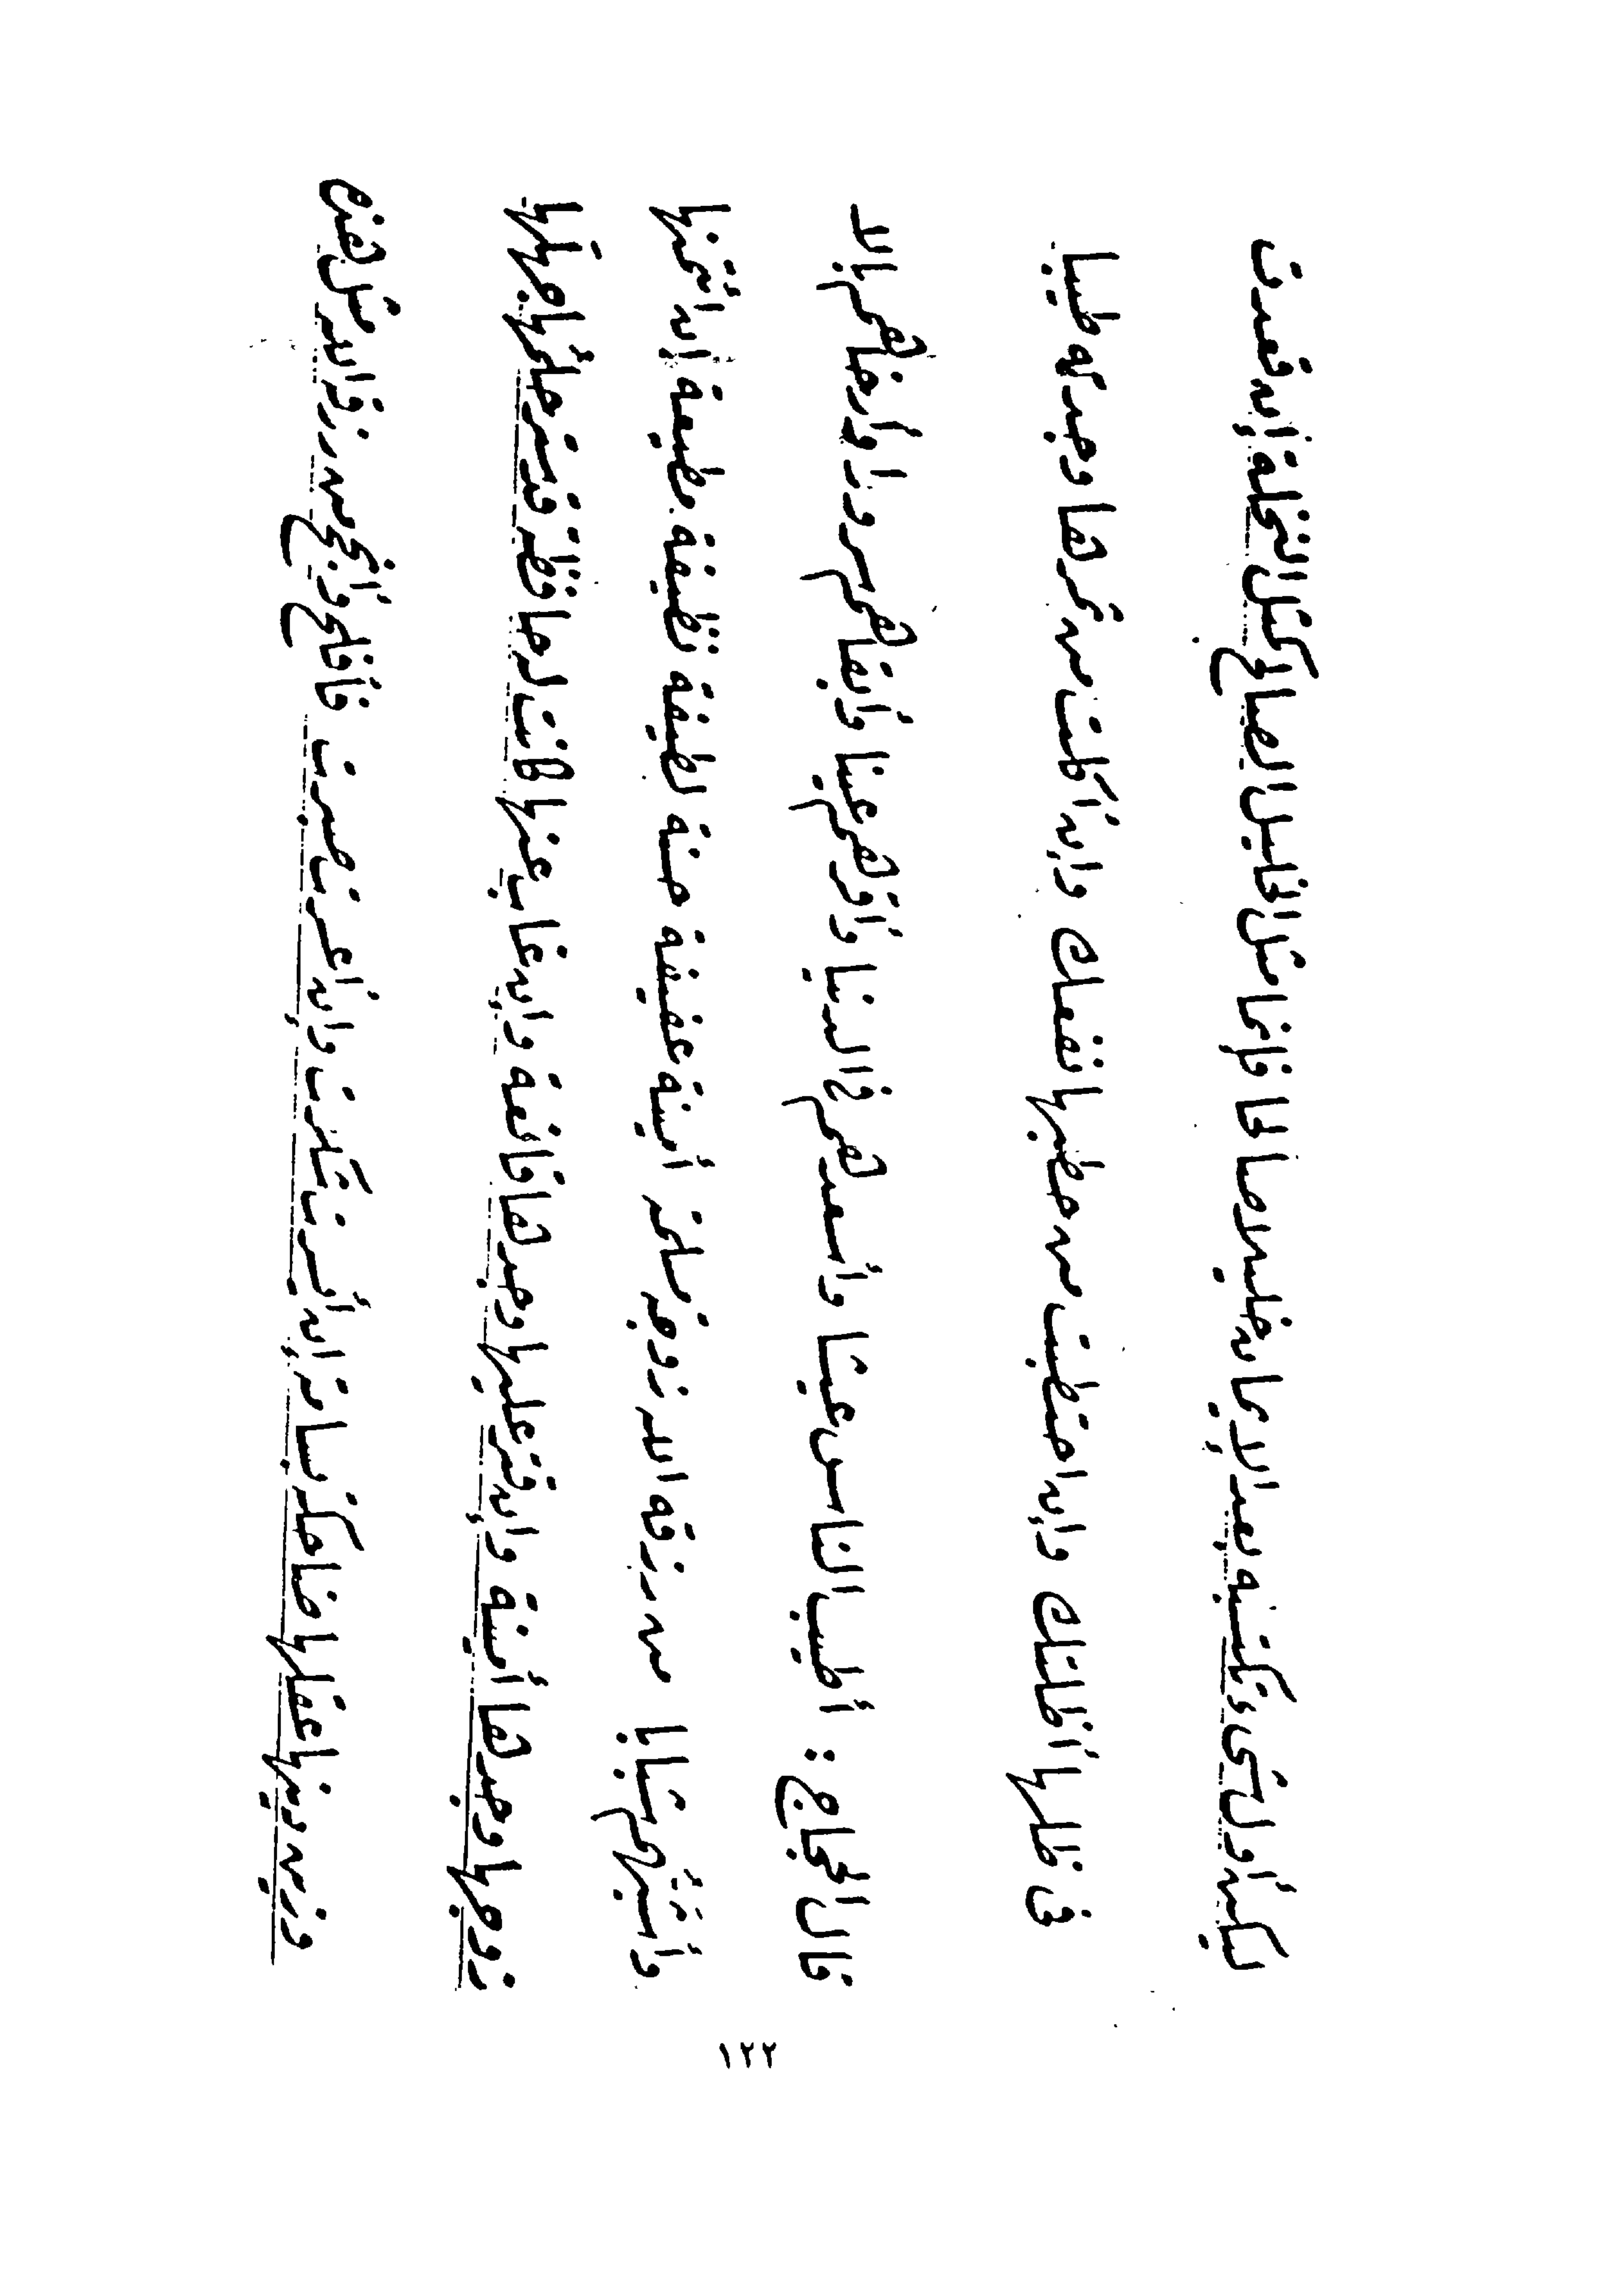 ليكن أول شىء تكتسبه بعد الإيمان خليلا صالحا فإنما مثل الخليل الصالح كمثل النخلة إن قعدت
فى ظلها أظلتك وإن احتطبت من حطبها نفعك وإن أكلت من ثمرها وجدته طيبا
قال الحجاج : أطيب الناس عيشا وأسعدهم فى الدنيا وأقرهم عينا وأبقاهم سرورا وأرضاهم بالا
وأشبهم شبابا من رزقه الله زوجة مسلمة أمينة عفيفة حسنة لطيفة نظيفة مطيعة إن أئتمنها
زوجها وجدها أمينة وإن قتر عليها وجدها قانعة وإن غاب عنها كانت له حافظة قد ستر حلمها جهلها
وزين دينها عقلها ضاحكة بسامة إن أيسرت شكرت وإن أعسرت صبرت فأفلح وأنجح من رزقه الله مثل هذه
١٢٢